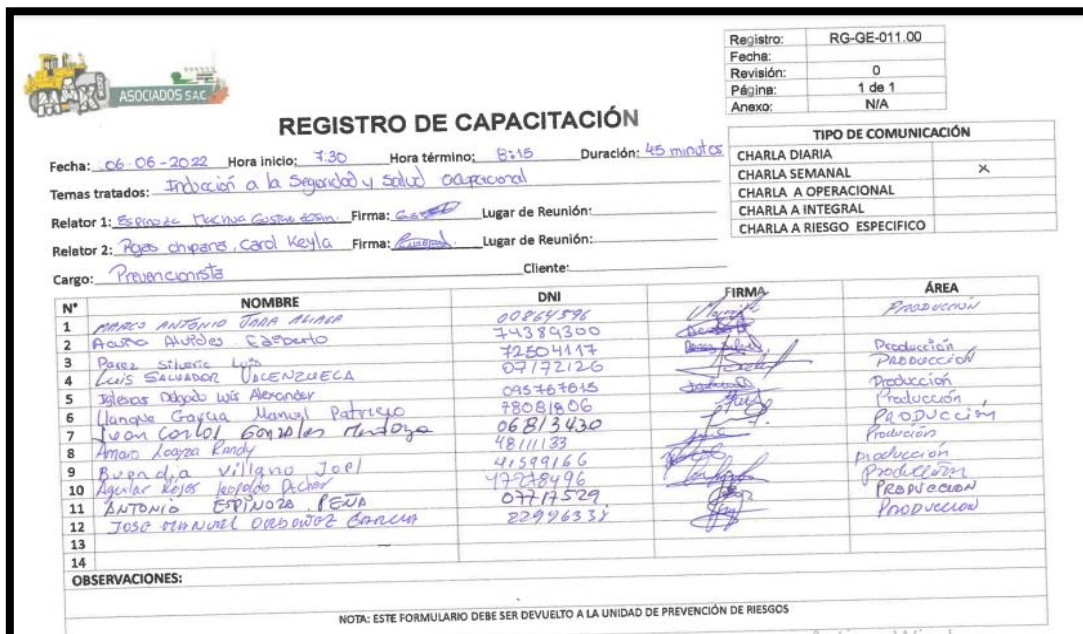 Registro: RG-GE-011.00
Fecha:
Revisión: 0
Página: 1 de 1
Anexo: N/A
MAKJ ASOCIADOS SAC
REGISTRO DE CAPACITACIÓN
Fecha: 06-06-2022 Hora inicio: 7:30 Hora término: 8:15 Duración: 45 minutos
Temas tratados: Inducción a la Seguridad y Salud Ocupacional
Relator 1: Espinoza Firma: Lugar de Reunión:
Relator 2: Rojas chipana, Carol Keyla Firma: Lugar de Reunión:
Cargo: Prevencionista Cliente:
TIPO DE COMUNICACIÓN
CHARLA DIARIA
CHARLA SEMANAL X
CHARLA A OPERACIONAL
CHARLA A INTEGRAL
CHARLA A RIESGO ESPECIFICO
N° NOMBRE DNI FIRMA ÁREA
1 MARCO ANTONIO JARA ALIAGA 00864596 PRODUCCIÓN
2 Alvides Edberto 74389300
3 Perez Silverio Luis 72504117 Producción
4 Luis SALVADOR VALENZUELA 07172126 PRODUCCIÓN
5 Iglesias Delgado Luis Alexander 095767615 Producción
6 Llanque Garcia Manuel Patricio 78081806 Producción
7 Juan Carlos Gonzales Mendoza 06813430 PRODUCCIÓN
8 Amaro Loayza Randy 48111133 Producción
9 Buendia Villano Joel 41599166 producción
10 Aguilar Rojas Leopoldo 47278496 Producción
11 ANTONIO ESPINOZA PEÑA 07717529 PRODUCCION
12 JOSE MANUEL ORDOÑEZ GARCIA 22996338 PRODUCCION
13
14
OBSERVACIONES:
NOTA: ESTE FORMULARIO DEBE SER DEVUELTO A LA UNIDAD DE PREVENCIÓN DE RIESGOS